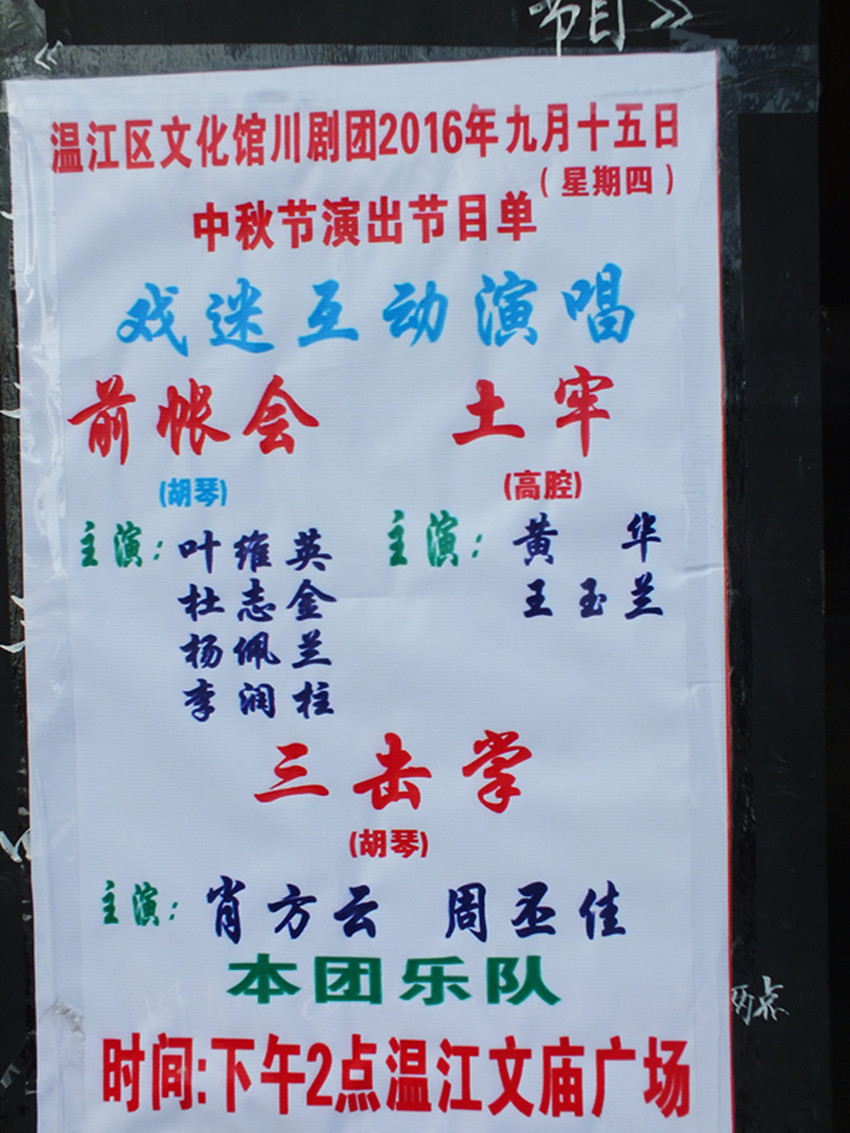 节目》
《
温江区文化馆川剧团2016年九月十五日
（星期四）
中秋节演出节目单
戏迷互动演唱
前帐会 土牢
(胡琴) (高腔)
主演：叶维英 主演：黄华
杜志金 王玉兰
杨佩兰
李润柱
三击掌
(胡琴)
主演：肖方云 周丕佳
本团乐队
两点
时间:下午2点温江文庙广场